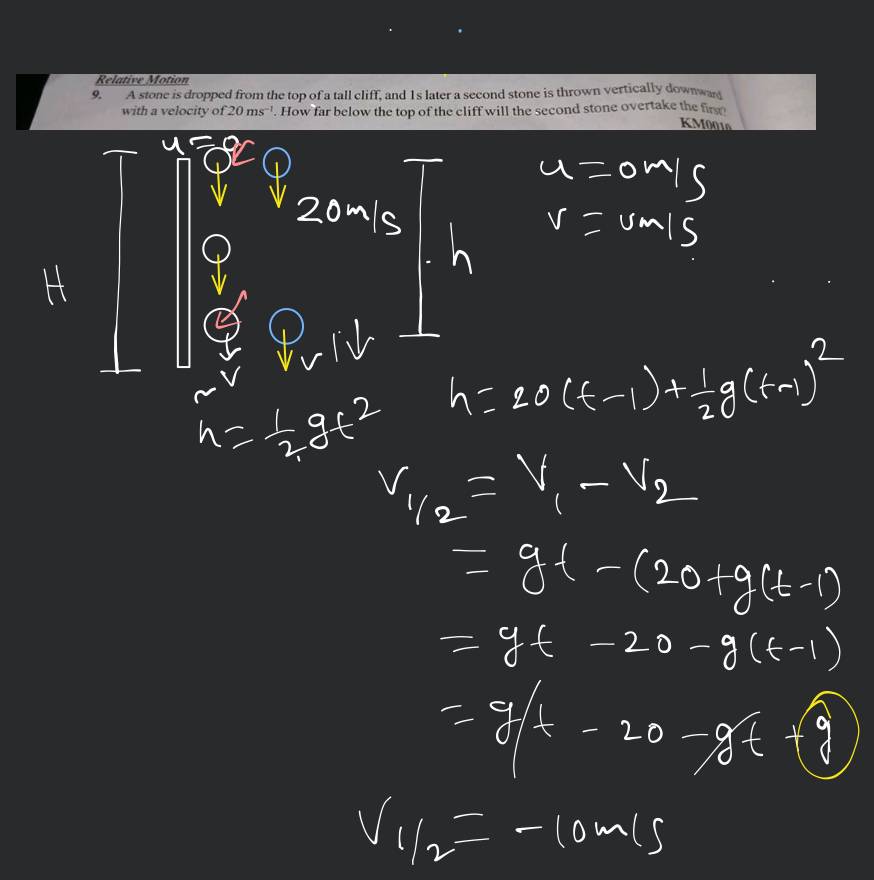 Relative Motion
9. A stone is dropped from the top of a tall cliff, and 1s later a second stone is thrown vertically downward
with a velocity of 20 ms⁻¹. How far below the top of the cliff will the second stone overtake the first?
u=0
20m/s
H
h
u=0m/s
v=vm/s
v
v
h=½gt²
h=20(t-1)+½g(t-1)²
V₁/₂=V₁-V₂
=gt-(20+g(t-1)
=gt-20-g(t-1)
=gt-20-gt+g
V₁/₂=-10m/s